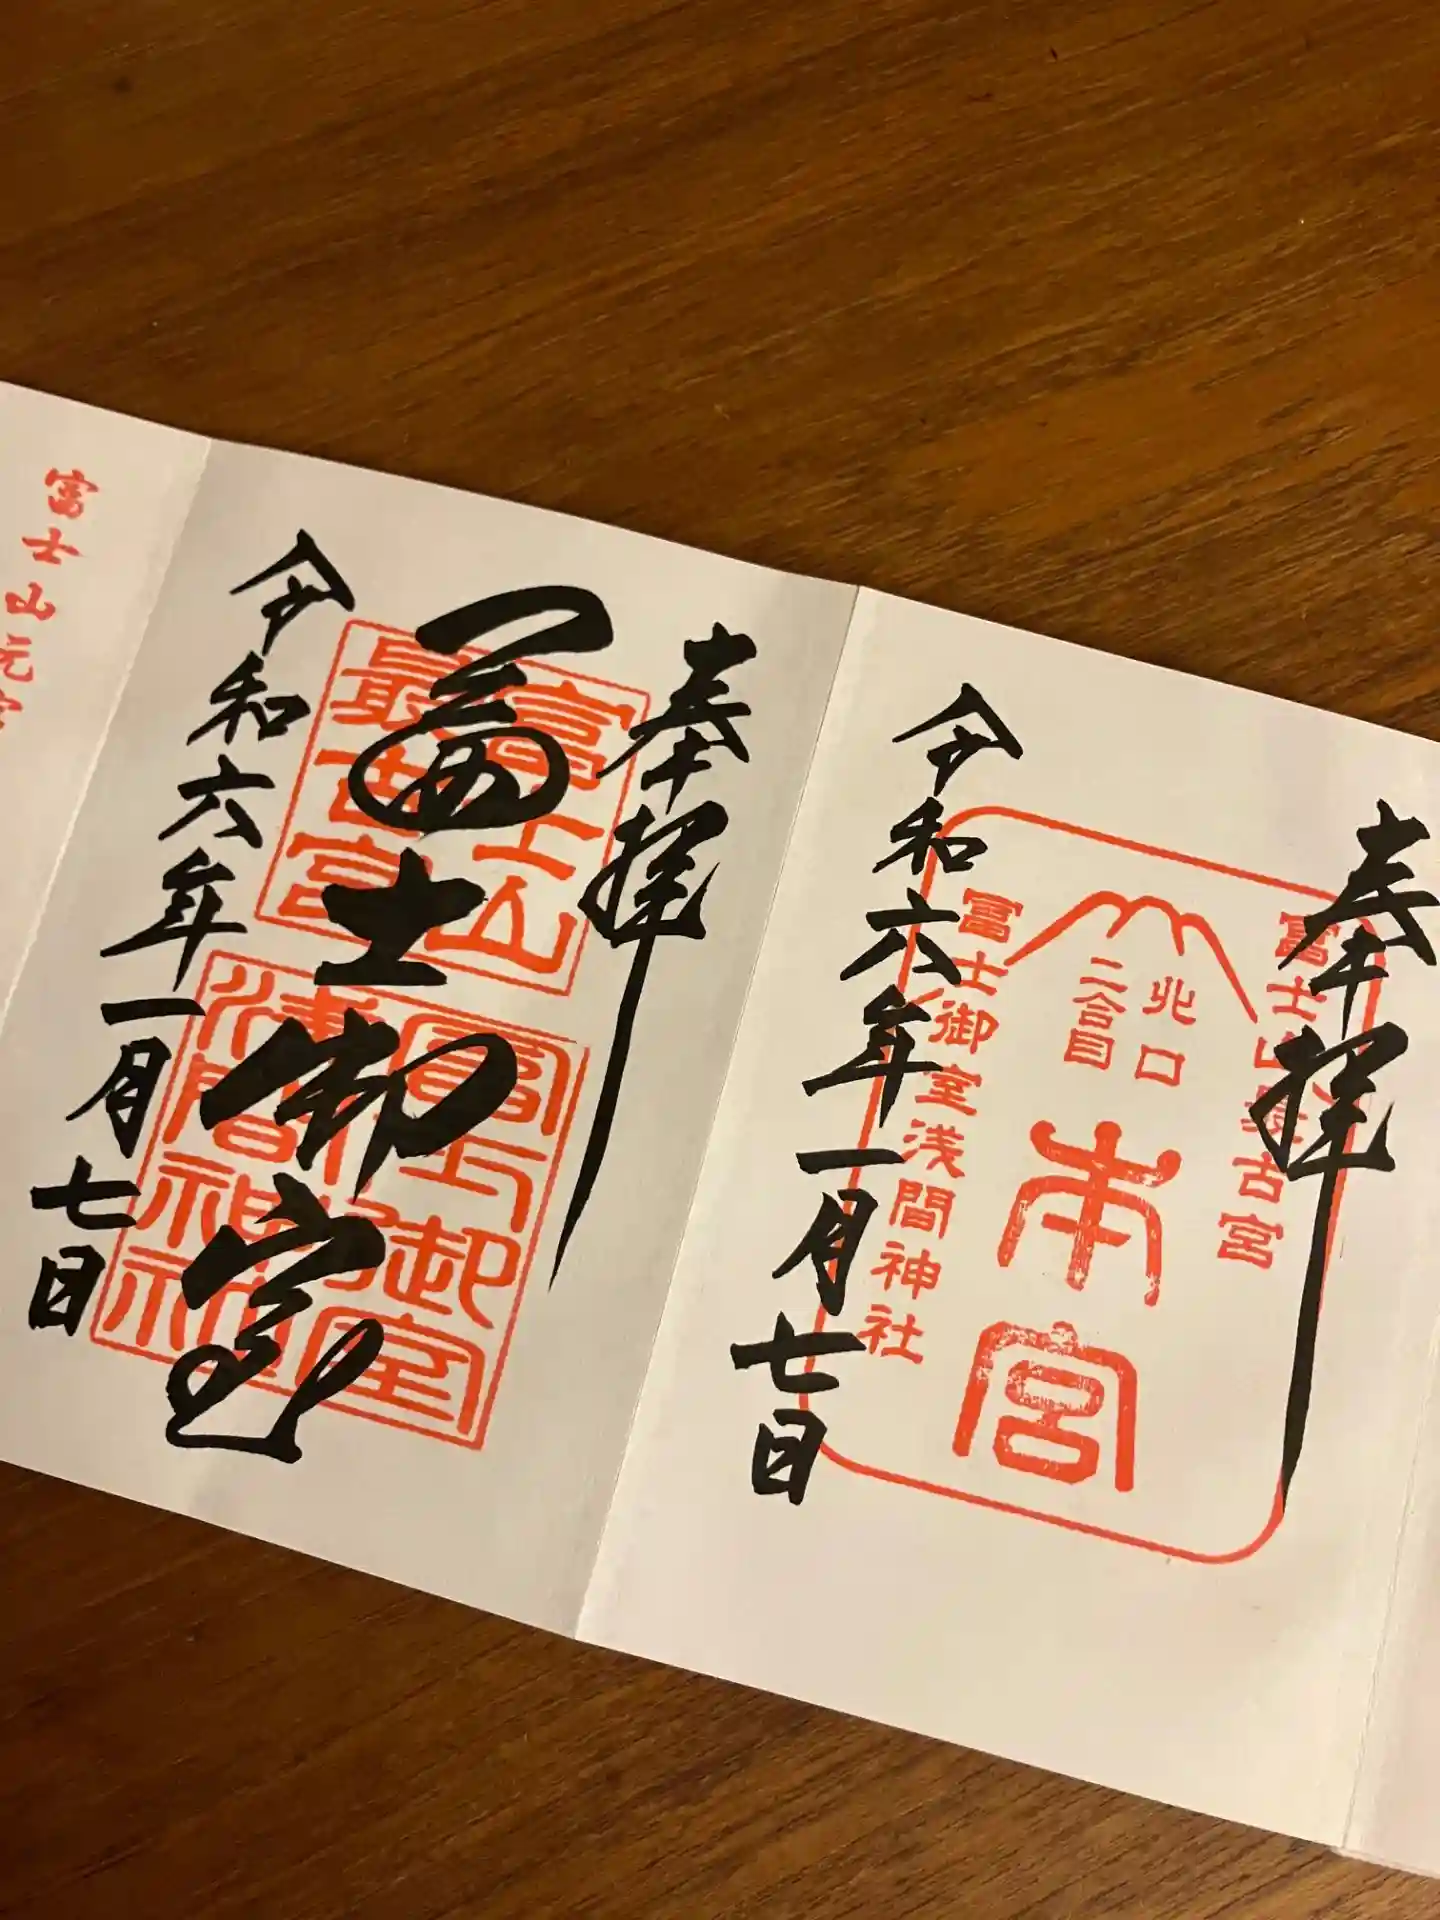 奉拝
富士山最古宮
北口
二合目
本宮
富士御室浅間神社
令和六年一月七日
奉拝
富士山
最古宮
富士御室
浅間神社
富士御室
令和六年一月七日
富士山元宮